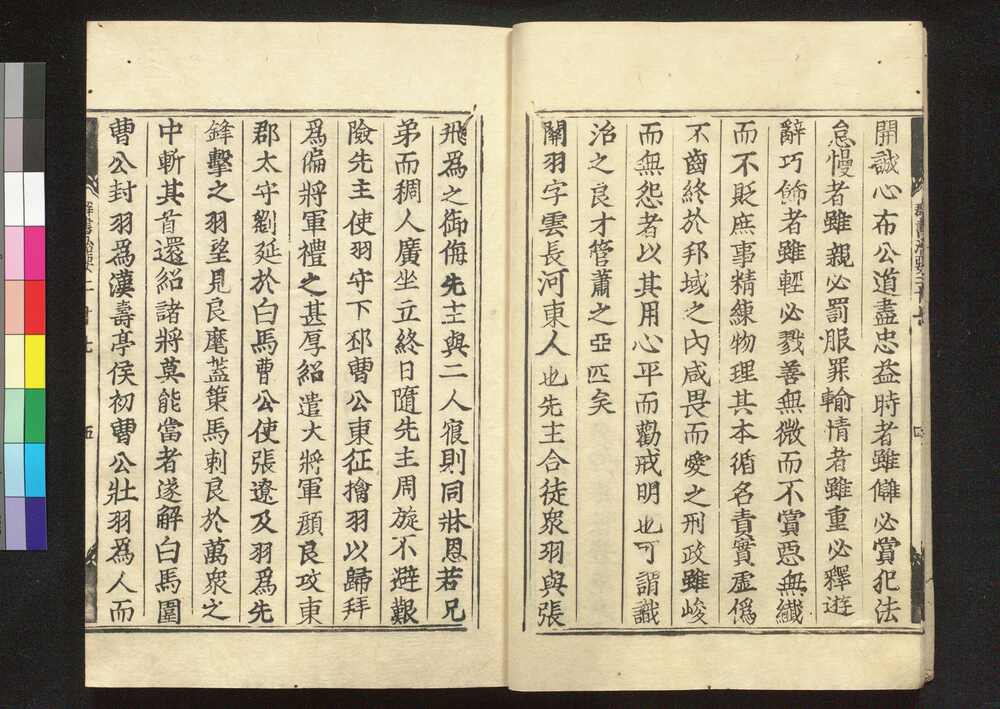 開誠心布公道盡忠益時者雖讎必賞犯法
怠慢者雖親必罰服罪輸情者雖重必釋遊
辭巧飾者雖輕必戮善無微而不賞惡無纎
而不貶庶事精練物理其本循名責實虛僞
不齒終於邦域之內咸畏而愛之刑政雖峻
而無怨者以其用心平而勸戒明也可謂識
治之良才管蕭之亞匹矣
關羽字雲長河東人也先主合徒衆羽與張
飛爲之御侮先主與二人寢則同牀恩若兄
弟而稠人廣坐立終日隨先主周旋不避艱
險先主使羽守下邳曹公東征擒羽以歸拜
爲偏將軍禮之甚厚紹遣大將軍顔良攻東
郡太守劉延於白馬曹公使張遼及羽爲先
鋒擊之羽望見良麾蓋策馬刺良於萬衆之
中斬其首還紹諸將莫能當者遂解白馬圍
曹公封羽爲漢壽亭侯初曹公壯羽爲人而
群書治要二十七
五